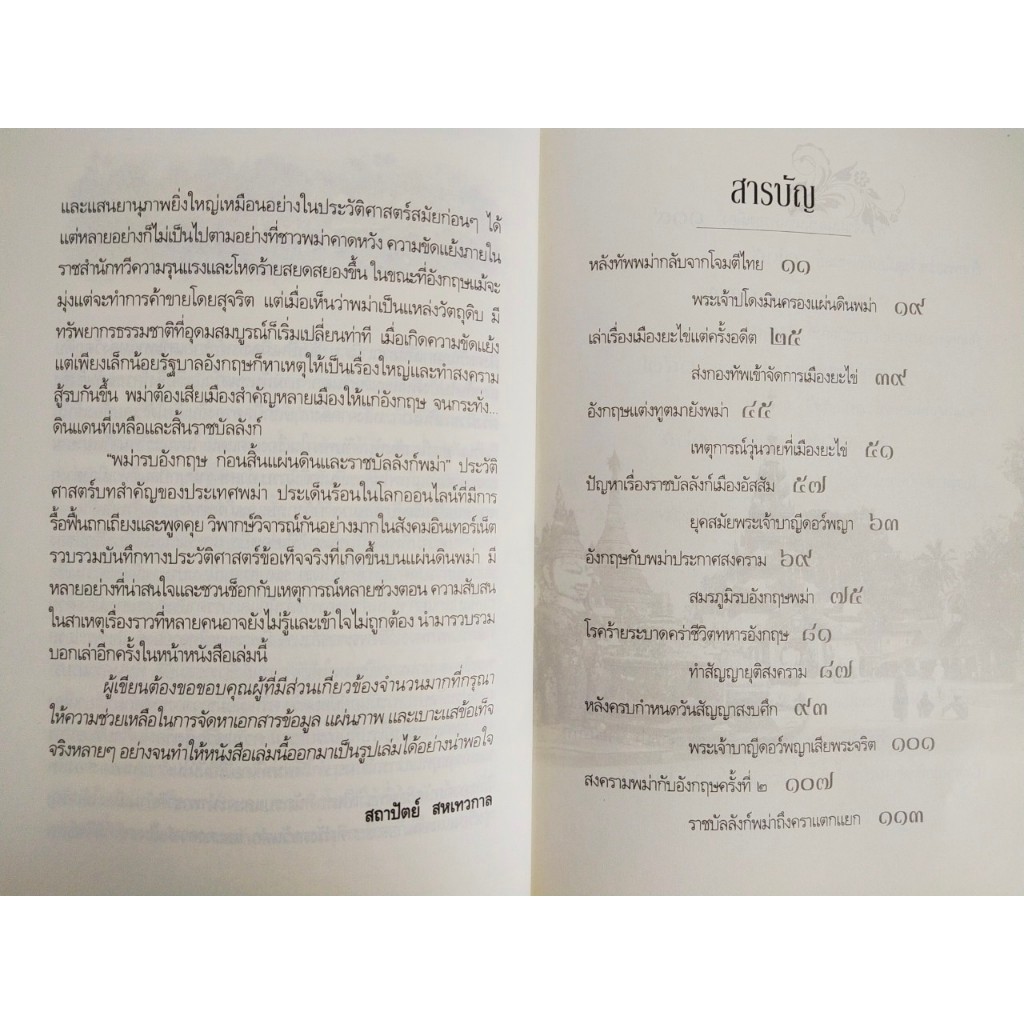 และแสนยานุภาพยิ่งใหญ่เหมือนอย่างในประวัติศาสตร์สมัยก่อนๆ ได้
แต่หลายอย่างก็ไม่เป็นไปตามอย่างที่ชาวพม่าคาดหวัง ความขัดแย้งภายใน
ราชสำนักทวีความรุนแรงและโหดร้ายสยดสยองขึ้น ในขณะที่อังกฤษแม้จะ
มุ่งแต่จะทำการค้าขายโดยสุจริต แต่เมื่อเห็นว่าพม่าเป็นแหล่งวัตถุดิบ มี
ทรัพยากรธรรมชาติที่อุดมสมบูรณ์ก็เริ่มเปลี่ยนท่าที เมื่อเกิดความขัดแย้ง
แต่เพียงเล็กน้อยรัฐบาลอังกฤษก็หาเหตุให้เป็นเรื่องใหญ่และทำสงคราม
สู้รบกันขึ้น พม่าต้องเสียเมืองสำคัญหลายเมืองให้แก่อังกฤษ จนกระทั่ง...
ดินแดนที่เหลือและสิ้นราชบัลลังก์
"พม่ารบอังกฤษ ก่อนสิ้นแผ่นดินและราชบัลลังก์พม่า" ประวัติ
ศาสตร์บทสำคัญของประเทศพม่า ประเด็นร้อนในโลกออนไลน์ที่มีการ
รื้อฟื้นถกเถียงและพูดคุย วิพากษ์วิจารณ์กันอย่างมากในสังคมอินเทอร์เน็ต
รวบรวมบันทึกทางประวัติศาสตร์ข้อเท็จจริงที่เกิดขึ้นบนแผ่นดินพม่า มี
หลายอย่างที่น่าสนใจและชวนช็อกกับเหตุการณ์หลายช่วงตอน ความสับสน
ในสาเหตุเรื่องราวที่หลายคนอาจยังไม่รู้และเข้าใจไม่ถูกต้อง นำมารวบรวม
บอกเล่าอีกครั้งในหน้าหนังสือเล่มนี้
ผู้เขียนต้องขอขอบคุณผู้ที่มีส่วนเกี่ยวข้องจำนวนมากที่กรุณา
ให้ความช่วยเหลือในการจัดหาเอกสารข้อมูล แผ่นภาพ และเบาะแสข้อเท็จ
จริงหลายๆ อย่างจนทำให้หนังสือเล่มนี้ออกมาเป็นรูปเล่มได้อย่างน่าพอใจ
สถาปัตย์ สหเทวกาล
สารบัญ
หลังทัพพม่ากลับจากโจมตีไทย ๑๑
พระเจ้าปโดงมินครองแผ่นดินพม่า ๑๙
เล่าเรื่องเมืองยะไข่แต่ครั้งอดีต ๒๕
ส่งกองทัพเข้าจัดการเมืองยะไข่ ๓๙
อังกฤษแต่งทูตมายังพม่า ๔๕
เหตุการณ์วุ่นวายที่เมืองยะไข่ ๕๑
ปัญหาเรื่องราชบัลลังก์เมืองอัสสัม ๕๗
ยุคสมัยพระเจ้าบาญีดอว์พญา ๖๓
อังกฤษกับพม่าประกาศสงคราม ๖๙
สมรภูมิรบอังกฤษพม่า ๗๕
โรคร้ายระบาดคร่าชีวิตทหารอังกฤษ ๘๑
ทำสัญญายุติสงคราม ๘๗
หลังครบกำหนดวันสัญญาสงบศึก ๙๓
พระเจ้าบาญีดอว์พญาเสียพระจริต ๑๐๑
สงครามพม่ากับอังกฤษครั้งที่ ๒ ๑๐๗
ราชบัลลังก์พม่าถึงคราแตกแยก ๑๑๓